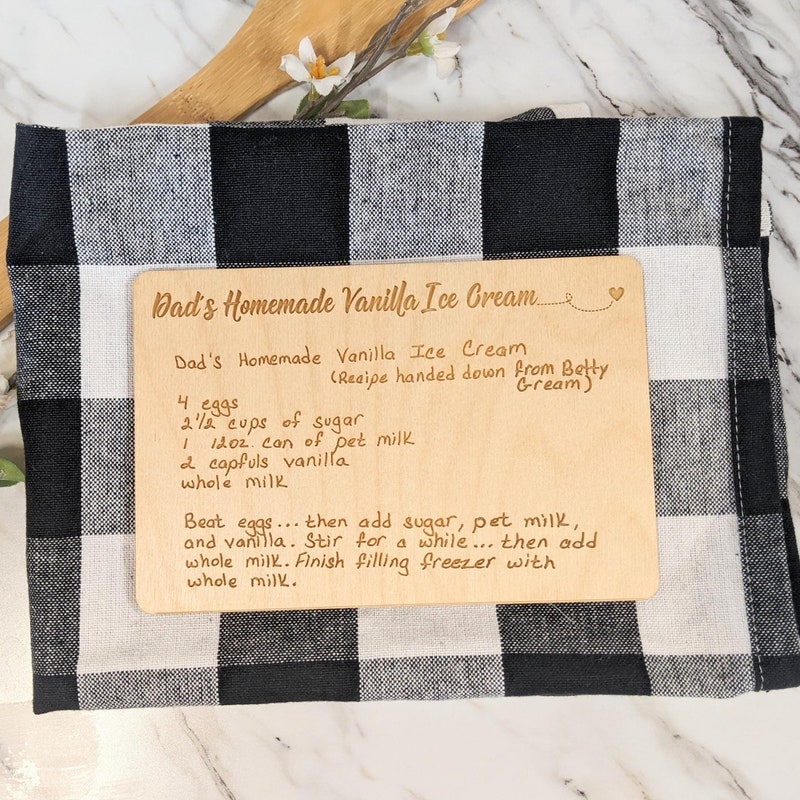 Dad's Homemade Vanilla Ice Cream
Dad's Homemade Vanilla Ice Cream
(Recipe handed down from Betty
Gream)
4 eggs
2 1/2 cups of sugar
1 12oz. can of pet milk
2 capfuls vanilla
whole milk
Beat eggs... then add sugar, pet milk,
and vanilla. Stir for a while... then add
whole milk. Finish filling freezer with
whole milk.